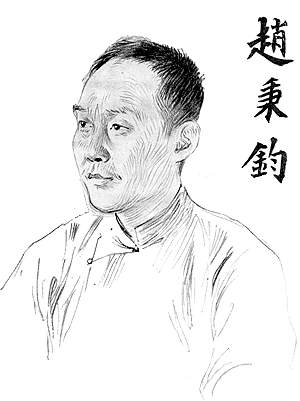 趙秉鈞